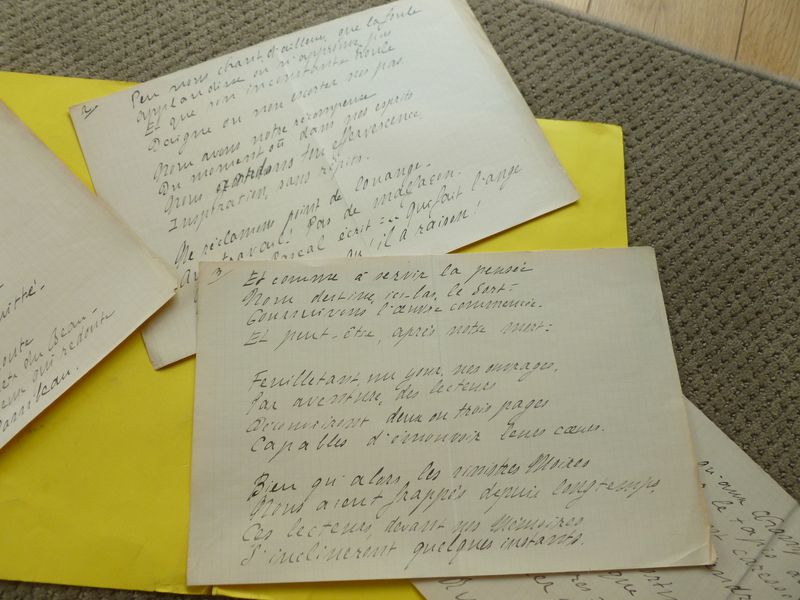 2/
Peu nous chaut, d'ailleurs, que la foule
Applaudisse ou n'apprécie pas
Et que son inconstante houle
Daigne ou non escorter nos pas.
Nous avons notre récompense
Du moment où dans nos esprits
Nous gardons ton effervescence,
Inspiration, sans répits.
Ne réclamons point de louange.
travail! Pas de malaçon.
Pascal écrit: "Qui fait l'ange
qu'il a raison!
3/
Et comme à servir la pensée
Nous destine, ici-bas, le Sort=
Poursuivons l'œuvre commencée.
Et peut-être, après notre mort=
Feuilletant, un jour, nos ouvrages,
Par aventure, des lecteurs
Découvriront deux ou trois pages
Capables d'émouvoir leurs cœurs.
Bien qu'alors, les sinistres Moires
Nous aient frappés depuis longtemps,
Ces lecteurs, devant nos Mémoires
S'inclineront quelques instants.
du Beau-
qui redoute